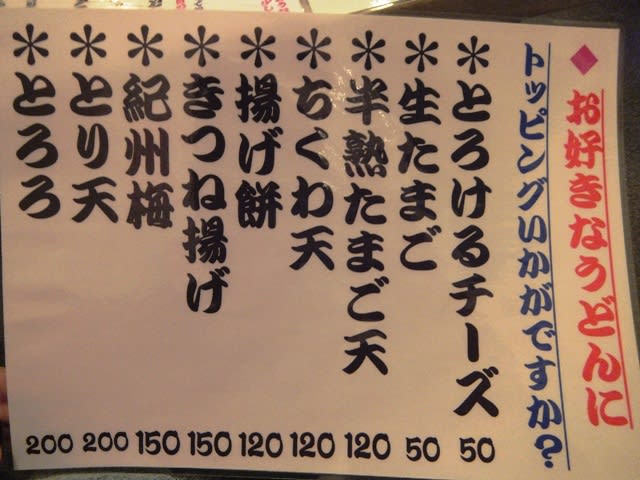 ◆お好きなうどんに
トッピングいかがですか?
＊とろけるチーズ 50
＊生たまご 50
＊半熟たまご天 120
＊ちくわ天 120
＊揚げ餅 120
＊きつね揚げ 150
＊紀州梅 150
＊とり天 200
＊とろろ 200